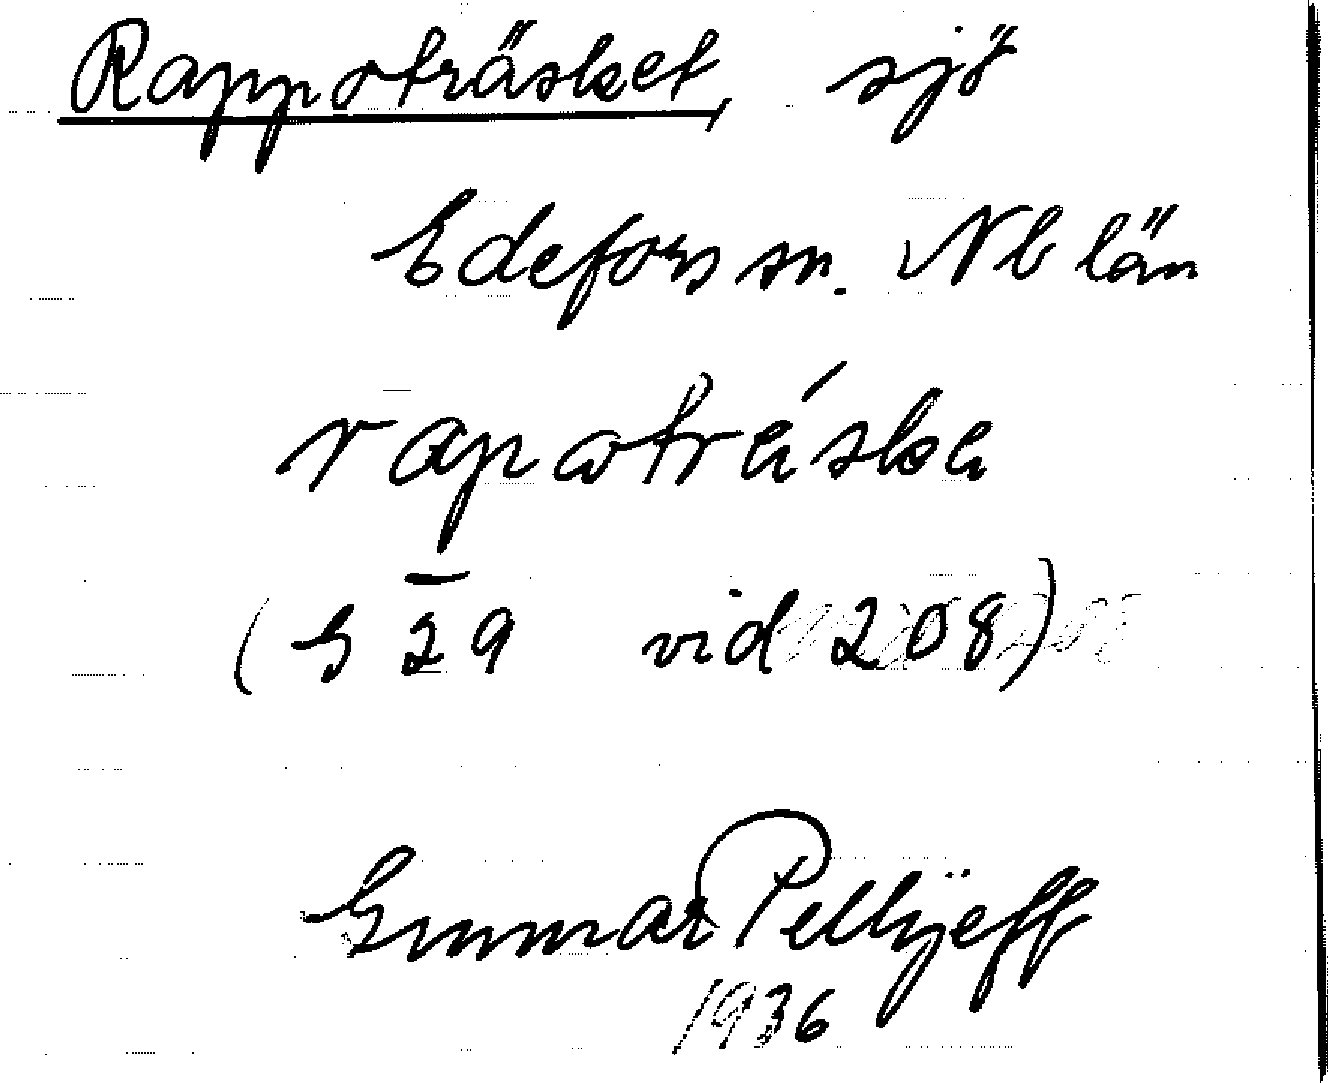 Rappoträsket, sjö
Edefors sn. Nb län
rapotráska
(G 29 vid 208)
Gunnar Pellijeff
1936